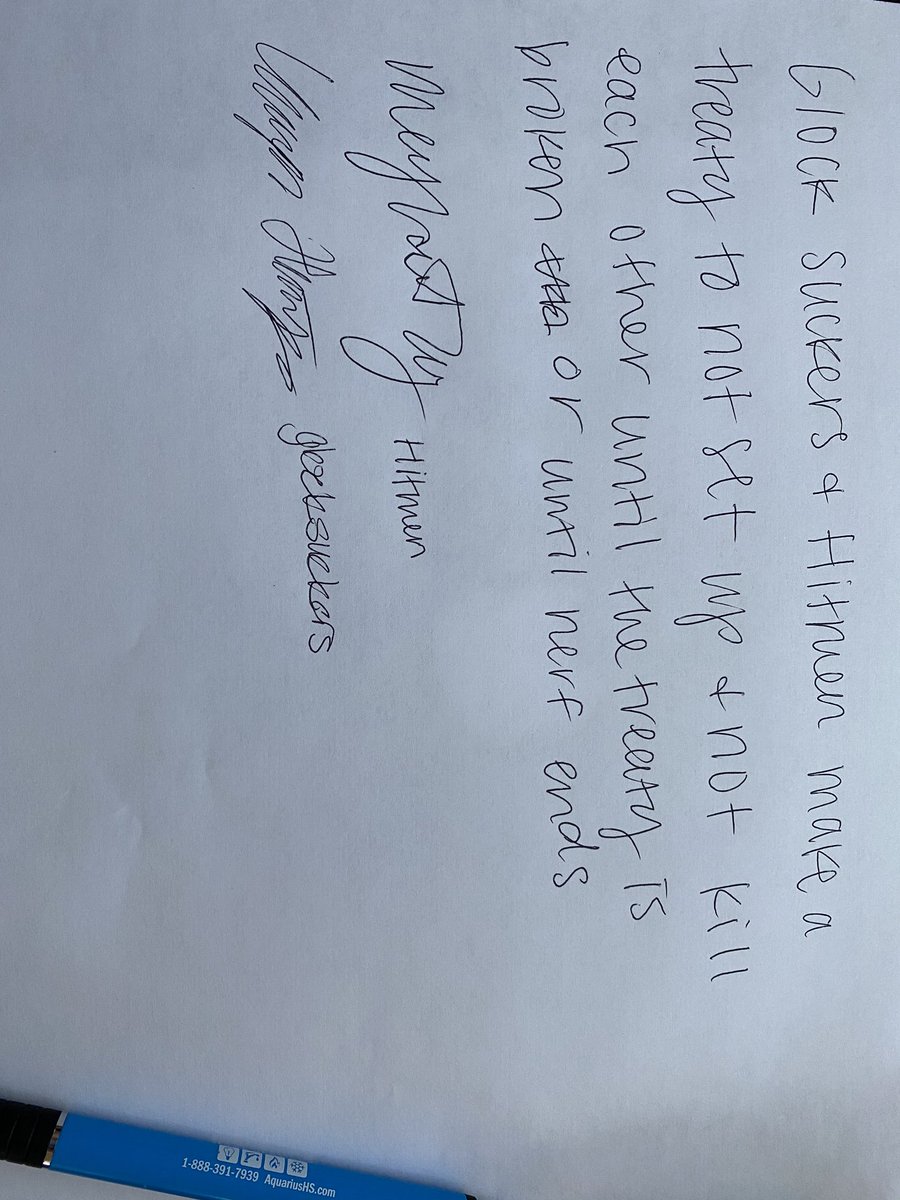 Glock suckers & Hitmen make a
treaty to not set up & not kill
each other until the treaty is
broken or until nerf ends
Hitmen
glocksuckers
1-888-391-7939 AquariusHS.com